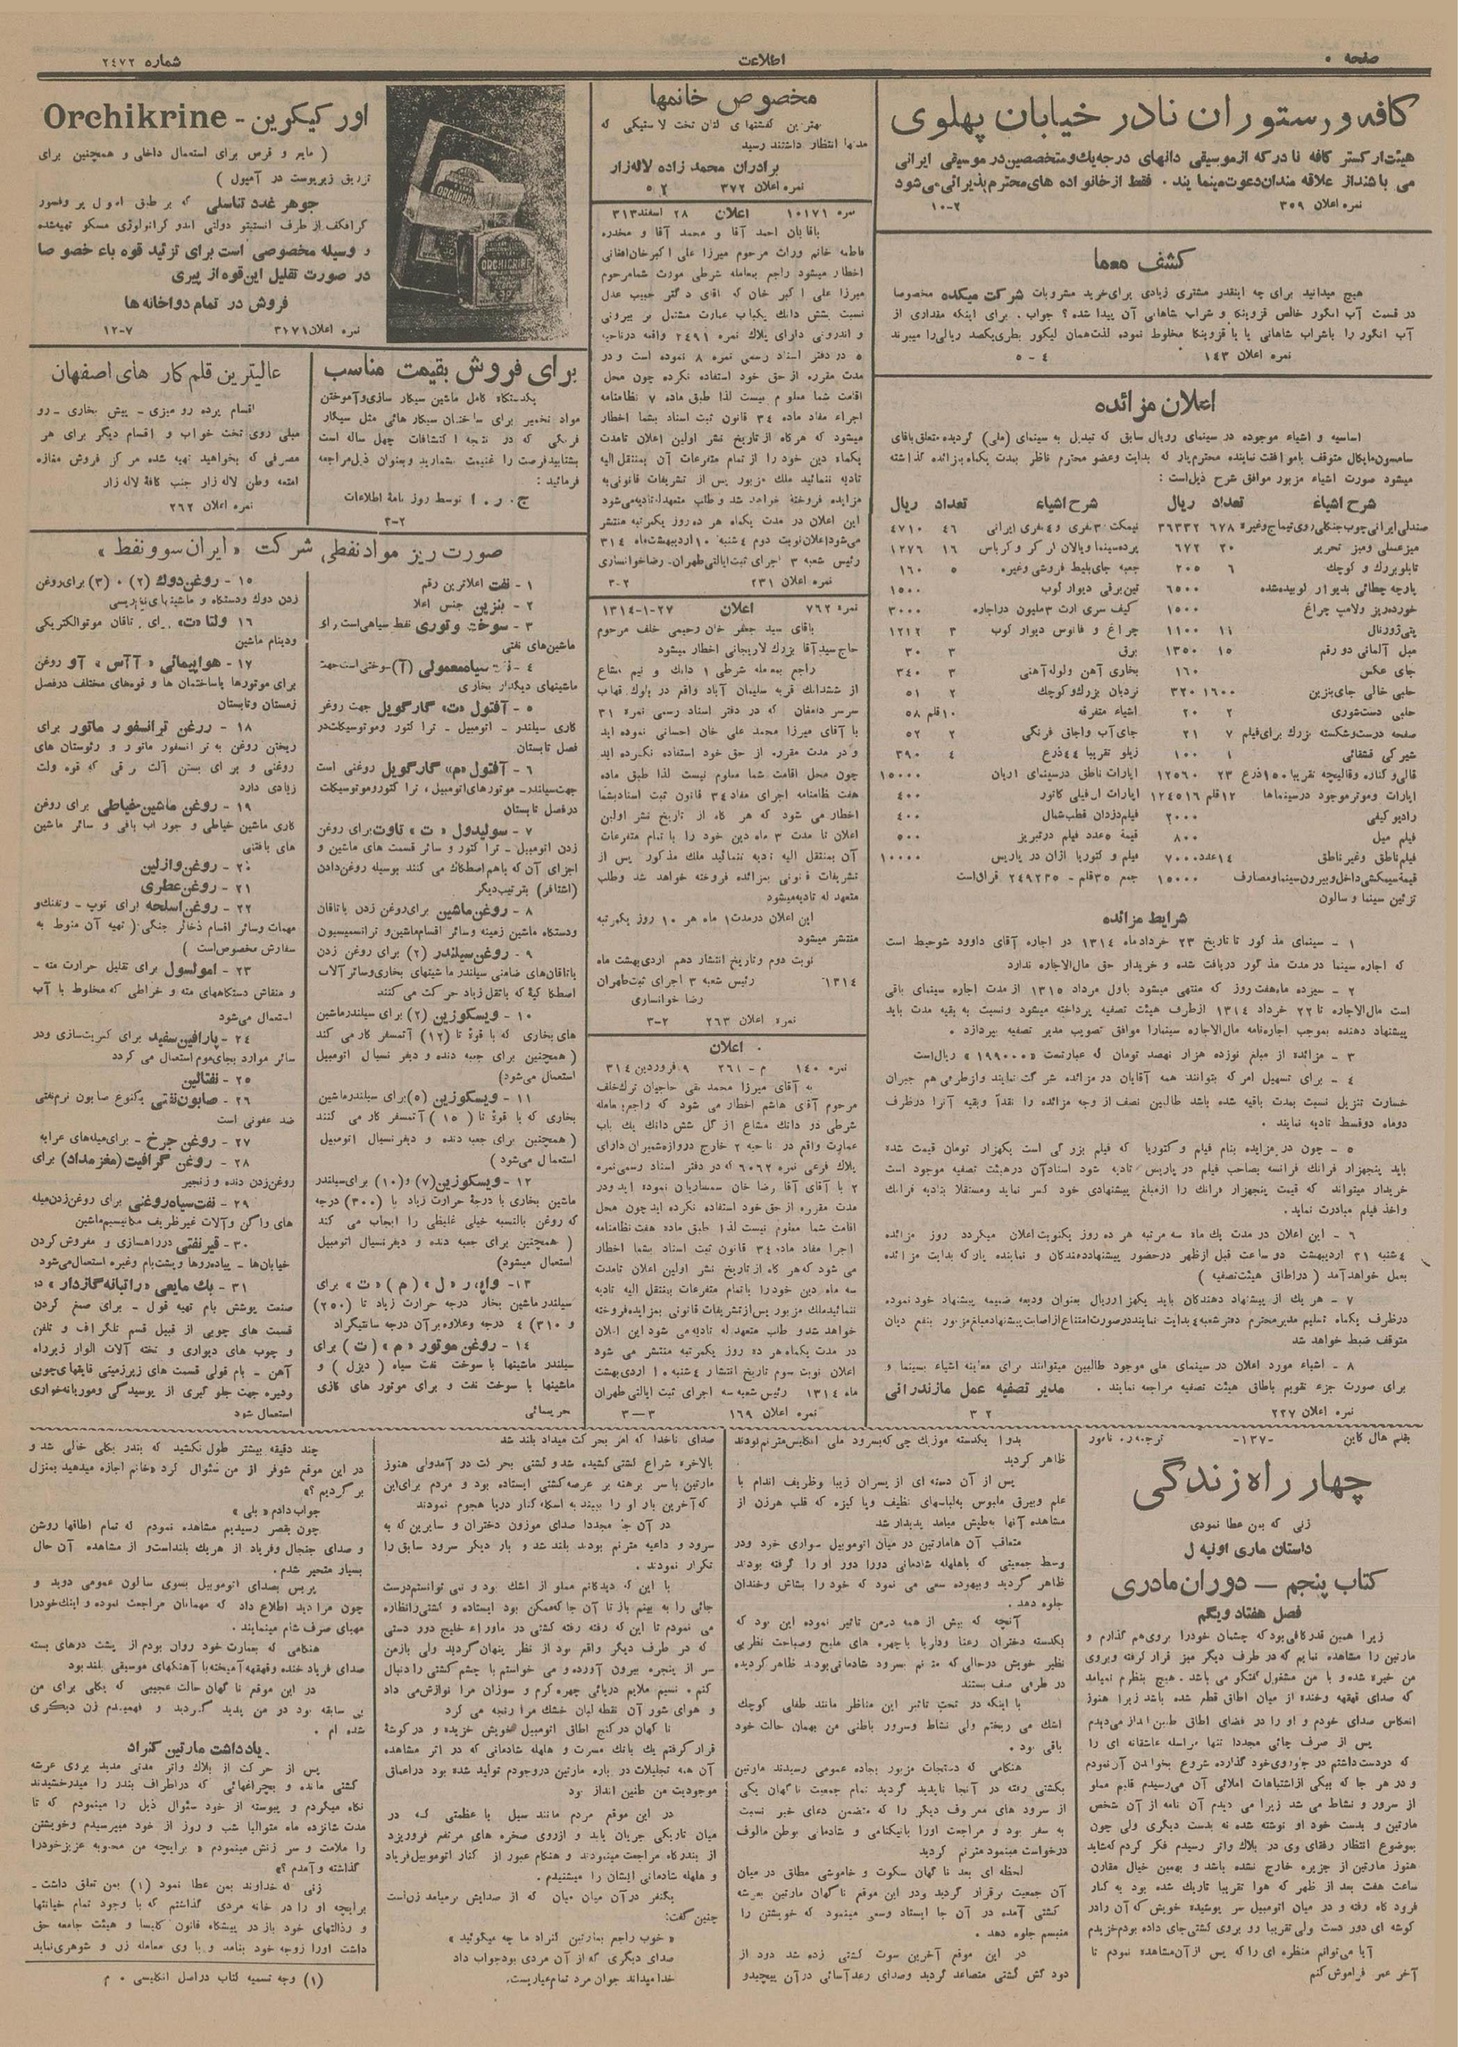 صفحه ۰
اطلاعات
شماره ۲۴۷۲
کافه و رستوران نادر خیابان پهلوی
هیئت ارکستر کافه نادر که از موسیقی دانهای درجه یک و متخصصین در موسیقی ایرانی
می باشند از علاقه مندان دعوت مینمایند . فقط از خانواده های محترم پذیرائی می شود
نمره اعلان ۳۵۹ ۲-۱۰
کشف معما
هیچ میدانید برای چه اینقدر مشتری زیادی برای خرید مشروبات شرکت میکده مخصوصا
در قسمت آب انگور خالص قزوینکا و شراب شاهانی آن پیدا شده ؟ جواب . برای اینکه مقداری از
آب انگور را باشراب شاهانی یا با قزوینکا مخلوط نموده لذت همان لیکور بطری یکصد ریالی را میبرند
نمره اعلان ۱۴۳ ۴ - ۵
اعلان مزائده
اساسیه و اشیاء موجوده در سینمای رویال سابق که تبدیل به سینمای (ملی) گردیده متعلق باقای
سامسون مایکال متوقف باموافقت نماینده محترم پارکه بدایت وعضو محترم ناظر بمدت یکماه بمزائده گذاشته
میشود صورت اشیاء مزبور موافق شرح ذیل است :
شرح اشیاء تعداد ریال شرح اشیاء تعداد ریال
صندلی ایرانی چوب جنگلی روی تیماج وغیره ۶۷۸ ۳۶۳۳۲ نیمکت ۳ نفری و ۴ نفری ایرانی ۴۶ ۴۷۱۰
میز عسلی ومیز تحریر ۲۰ ۶۷۲ پرده سینما وپالان ارکر و کرباس ۱۶ ۱۲۷۶
تابلو بزرک و کوچک ۶ ۲۰۵ جعبه جای بلیط فروشی وغیره ۵ ۱۶۰
پارچه چطائی بدیوار کوبیده شده ۶۵۰۰ تین برقی دیوار کوب ۱۵۰۰
خورده ریز ولامپ چراغ ۱۵۰۰ کیف سری ارت ۳ میلون در اجاره ۳۰۰۰
پتی ژورنال ۱۱ ۱۱۰۰ چراغ و فانوس دیوار کوب ۳ ۱۲۱۲
مبل آلمانی دو رقم ۱۵ ۱۳۵۰ برق ۳ ۳۰
جای عکس ۱۶۰ بخاری آهن ولوله آهنی ۳ ۳۴۰
حلبی خالی جای بنزین ۱۶۰۰ ۳۲۰ نردبان بزرک وکوچک ۲ ۵۱
حلبی دست شوری ۲ ۲۰ اشیاء متفرقه ۱۰ قلم ۵۸
صفحه درست وشکسته بزرک برای فیلم ۷ ۲۱ جای آب واجاق فرنگی ۲ ۵۲
شیرکی قشقائی ۱ ۱۰۰ زیلو تقریبا ۴۴ ذرع ۴ ۳۹۰
قالی وکناره وقالیچه تقریبا ۱۵۰ ذرع ۲۳ ۱۲۵۶۰ اپارات ناطق در سینمای ایران ۱۵۰۰۰
اپارات وموتر موجود در سینماها ۱۲ قلم ۱۲۴۵۱۶ اپارات ال فیلی کاتور ۴۰۰
رادیو کیفی ۲۰۰۰ فیلم دزدان قطب شمال ۴۰۰
فیلم مبل ۸۰۰ قیمة ۵ عدد فیلم در تبریز ۵۰۰
فیلم ناطق وغیر ناطق ۱۴ عدد ۷۰۰۰ فیلم و کتوریا اژان در پاریس ۱۰۰۰۰
قیمة سیمکشی داخل وبیرون سینما ومصارف ۱۵۰۰۰ جمع ۳۵ قلم - ۲۴۹۲۳۵ قران است
تزئین سینما و سالون
شرایط مزائده
۱ - سینمای مذکور تا تاریخ ۲۳ خرداد ماه ۱۳۱۴ در اجاره آقای داوود شوحیط است
که اجاره سینما در مدت مذکور دریافت شده و خریدار حق مال الاجاره ندارد
۲ - سیزده ماه هفت روز که منتهی میشود باول مرداد ۱۳۱۵ از مدت اجاره سینمای باقی
است مال الاجاره تا ۲۲ خرداد ۱۳۱۴ از طرف هیئت تصفیه پرداخته میشود ونسبت به بقیه مدت باید
پیشنهاد دهنده بموجب اجاره نامه مال الاجاره سینما را موافق تصویب مدیر تصفیه بپردازد .
۳ - مزائده از مبلغ نوزده هزار نهصد تومان که عبارتست «۱۹۹۰۰۰» ریال است
۴ - برای تسهیل امر که بتوانند همه آقایان در مزائده شرکت نمایند وازطرفی هم جبران
خسارت تنزیل نسبت بمدت باقیه شده باشد طالبین نصف از وجه مزائده را نقداً وبقیه آنرا درظرف
دوماه دوقسط تادیه نمایند .
۵ - چون در مزایده بنام فیلم وکتوریا که فیلم بزرگی است یکهزار تومان قیمت شده
باید پنجهزار فرانک فرانسه بصاحب فیلم در پاریس تادیه شود اسناد آن در هیئت تصفیه موجود است
خریدار میتواند که قیمت پنجهزار فرانک را ازمبلغ پیشنهادی خود کسر نماید ومستقلا بتادیه فرانک
واخذ فیلم مبادرت نماید.
۶ - این اعلان در مدت یک ماه سه مرتبه هر ده روز یکنوبت اعلان میگردد روز مزائده
۴ شنبه ۲۱ اردیبهشت دو ساعت قبل ازظهر درحضور پیشنهاددهندکان و نماینده پارکه بدایت مزائده
بعمل خواهد آمد ( در اطاق هیئت تصفیه )
۷ - هریک از پیشنهاد دهندکان باید یکهزار ریال بعنوان ودیعه ضمیمه پیشنهاد خود نموده
درظرف یکماه تسلیم مدیر محترم دفتر شعبه ۴ بدایت نمایند درصورت امتناع از اصابت پیشنهاد مبلغ مزبور بنفع دیان
متوقف ضبط خواهد شد
۸ - اشیاء مورد اعلان در سینمای ملی موجود طالبین میتوانند برای معاینه اشیاء بسینما و
برای صورت جزء تقویم باطاق هیئت تصفیه مراجعه نمایند . مدیر تصفیه عمل مازندرانی
نمره اعلان ۲۲۷ ۲ ۳
مخصوص خانمها
بهترین کفشهای کتان تخت لاستیکی که
مدتها انتظار داشتند رسید
برادران محمد زاده لاله زار
نمره اعلان ۳۷۲ ۲ ۵
نمره ۱۰۱۷۱ اعلان ۲۸ اسفند ۳۱۳
باقایان احمد آقا و محمد آقا و مخدره
فاطمه خانم وراث مرحوم میرزا علی اکبر خان افغانی
اخطار میشود راجع بمعامله شرطی مورث شما مرحوم
میرزا علی اکبر خان که اقای دکتر حبیب عدل
نسبت بشش دانک یکباب عمارت مشتمل بر بیرونی
و اندرونی دارای پلاک نمره ۲۴۹۱ واقعه درناحیه
۵ در دفتر اسناد رسمی نمره ۸ نموده است و در
مدت مقرره از حق خود استفاده نکرده چون محل
اقامت شما معلوم نیست لذا طبق ماده ۷ نظامنامه
اجراء مفاد ماده ۳۴ قانون ثبت اسناد بشما اخطار
میشود که هرکاه از تاریخ نشر اولین اعلان تا مدت
یکماه دین خود را از تمام متفرعات آن بمنتقل الیه
تادیه ننمائید ملک مزبور پس از تشریفات قانونی به
مزایده فروخته خواهد شد و طلب متعهد له تادیه می شود
این اعلان در مدت یکماه هر ده روز یکمرتبه منتشر
می شود اعلان نوبت دوم ۴ شنبه ۱۰ اردیبهشت ماه ۳۱۴
رئیس شعبه ۳ اجرای ثبت ایالتی طهران. رضا خوانساری
نمره اعلان ۲۳۱ ۲-۳
نمره ۷۶۲ اعلان ۲۷-۱-۱۳۱۴
باقای سید جعفر خان رحیمی خلف مرحوم
حاج سید آقا بزرک لاریجانی اخطار میشود
راجع بمعامله شرطی ۱ دانک و نیم مشاع
از ششدانک قریه سلیمان آباد واقع در بلوک قهاب
سرسر دامغان که در دفتر اسناد رسمی نمره ۳۱
با آقای میرزا محمد علی خان احسانی نموده اید
و در مدت مقرره از حق خود استفاده نکرده اید
چون محل اقامت شما معلوم نیست لذا طبق ماده
هفت نظامنامه اجرای مفاد ۳۴ قانون ثبت اسناد بشما
اخطار می شود که هر کاه از تاریخ نشر اولین
اعلان تا مدت ۳ ماه دین خود را با تمام متفرعات
آن بمنتقل الیه تادیه ننمائید ملک مذکور پس از
تشریفات قانونی بمزائده فروخته خواهد شد وطلب
متعهد له تادیه میشود
این اعلان درمدت ۱ ماه هر ۱۰ روز یکمرتبه
منتشر میشود
نوبت دوم وتاریخ انتشار دهم اردیبهشت ماه
۱۳۱۴ رئیس شعبه ۳ اجرای ثبت طهران
رضا خوانساری
نمره اعلان ۲۶۳ ۲-۳
اعلان
نمره ۱۴۰ م - ۲۶۱ ۹ فروردین ۳۱۴
به آقای میرزا محمد تقی حاجیان ترک خلف
مرحوم آقای هاشم اخطار می شود که راجع بمعامله
شرطی دو دانک مشاع از کل شش دانک یک باب
عمارت واقع در ناحیه ۲ خارج دروازه شمیران دارای
پلاک فرعی نمره ۶۰۶۲ که در دفتر اسناد رسمی نمره
۲ با آقای آقا رضا خان سمساریان نموده اید ودر
مدت مقرره از حق خود استفاده نکرده اید چون محل
اقامت شما معلوم نیست لذا طبق ماده هفت نظامنامه
اجرا مفاد ماده ۳۴ قانون ثبت اسناد بشما اخطار
می شود که هر کاه از تاریخ نشر اولین اعلان تامدت
سه ماه دین خود را باتمام متفرعات بمنتقل الیه تادیه
ننمائید ملک مزبور پس از تشریفات قانونی بمزایده فروخته
خواهد شد و طلب متعهد له تادیه می شود این اعلان
در مدت یکماه هر ده روز یکمرتبه منتشر می شود
اعلان نوبت سوم تاریخ انتشار ۴ شنبه ۱۰ اردیبهشت
ماه ۱۳۱۴ رئیس شعبه سه اجرای ثبت ایالتی طهران
نمره اعلان ۱۶۹ ۳-۳
اورکیکرین - Orchikrine
( مایع و قرص برای استعمال داخلی و همچنین برای
تزریق زیرپوست در آمپول )
جوهر غدد تناسلی که بر طبق اصول پروفسور
کرافکف از طرف انستیتو دولتی اندو کرانولوژی مسکو تهیه شده
و وسیله مخصوصی است برای تزئید قوه باء خصوصا
در صورت تقلیل این قوه از پیری
فروش در تمام دواخانه ها
نمره اعلان ۳۱۷۱ ۷-۱۲
ORCHICRINE
برای فروش بقیمت مناسب
یکدستگاه کامل ماشین سیکار سازی و آموختن
مواد تخمیر برای ساختن سیکار هائی مثل سیکار
فرنگی که در نتیجه اکتشافات چهل ساله است
بشتابید فرصت را غنیمت بشمارید وبعنوان ذیل مراجعه
فرمائید :
ج . ر . ا توسط روزنامۀ اطلاعات
۲-۲
عالیترین قلم کار های اصفهان
اقسام پرده رومیزی - پیش بخاری - رو
مبلی روی تخت خواب و اقسام دیگر برای هر
مصرفی که بخواهید تهیه شده مرکز فروش مغازه
امتعه وطن لاله زار جنب کافۀ لاله زار
نمره اعلان ۲۶۲
صورت ریز مواد نفطی شرکت «ایران سوونفط»
۱ - نفت اعلاترین رقم
۲ - بنزین جنس اعلا
۳ - سوخت وتوری نفط سیاهی است برای
ماشین های نفتی
۴ - نفت سیاه معمولی (آ) سوختی است جهت
ماشینهای دیگدار بخاری
۵ - آفتول «ت» گارگویل جهت روغن
کاری سیلندر - اتومبیل - تراکتور وموتوسیکلت در
فصل تابستان
۶ - آفتول «م» گارگویل روغنی است
جهت سیلندر - موتورهای اتومبیل ، تراکتور وموتوسیکلت
در فصل تابستان
۷ - سولیدول «ت» تاوت برای روغن
زدن اتومبیل - تراکتور و سائر قسمت های ماشین و
اجزای آن که باهم اصطکاک می کنند بوسیله روغن دادن
(اشتافر) بترتیب دیگر
۸ - روغن ماشین برای روغن زدن یاتاقان
ودستکاه ماشین زمینه وسائر اقسام ماشین و ترانسمیسیون
۹ - روغن سیلندر (۲) برای روغن زدن
یاتاقان های ضامنی سیلندر ماشینهای بخاری وسائر آلات
اصطکاکیۀ که باثقل زیاد حرکت می کنند
۱۰ - ویسکوزین (۲) برای سیلندر ماشین
های بخاری که با قوۀ تا (۱۲) آتمسفر کار می کند
( همچنین برای جعبه دنده و دیفرنسیال اتومبیل
استعمال می شود)
۱۱ - ویسکوزین (۵) برای سیلندر ماشین
بخاری که با قوۀ تا (۱۵) آتمسفر کار می کنند
(همچنین برای جعبه دنده و دیفرنسیال اتومبیل
استعمال می شود )
۱۲ - ویسکوزین (۷) و (۱۰) برای سیلندر
ماشین بخاری با درجۀ حرارت زیاد با (۳۰۰) درجه
که روغن بالنسبه خیلی غلیظی را ایجاب می کند
( همچنین برای جعبه دنده و دیفرنسیال اتومبیل
استعمال میشود)
۱۳ - واپور «ل» (م) «ت» برای
سیلندر ماشین بخار درجه حرارت زیاد تا (۲۵۰)
و ۳۱۰) درجه وعلاوه برآن درجه سانتیگراد
۱۴ - روغن موتور «م» (ت) برای
سیلندر ماشینها با سوخت نفت سیاه (دیزل) و
ماشینها با سوخت نفت و برای موتور های گازی
۱۵ - روغن دوک (۲) و (۳) برای روغن
زدن دوک ودستکاه و ماشینهای نخ ریسی
۱۶ ولتا «ت» برای یاتاقان موتوالکتریکی
ودینام ماشین
۱۷ - هواپیمائی «آآس» آو روغن
برای موتورها باساختمان ها و قوه های مختلف درفصل
زمستان وتابستان
۱۸ - روغن ترانسفور ماتور برای
ریختن روغن به ترانسفور ماتور و رئوستان های
روغنی و برای بستن آلت برقی که قوه ولت
زیادی دارد
۱۹ - روغن ماشین خیاطی برای روغن
کاری ماشین خیاطی و جوراب بافی و سائر ماشین
های بافتنی
۲۰ - روغن وازلین
۲۱ - روغن عطری
۲۲ - روغن اسلحه برای توپ - وتفنک و
مهمات وسائر اقسام ذخائر جنگی ( تهیه آن منوط به
سفارش مخصوص است )
۲۳ - امولسول برای تقلیل حرارت مته -
و منقاش دستکاههای مته و خراطی که مخلوط با آب
استعمال می شود
۲۴ - پارافین سفید برای کبریت سازی ودر
سائر موارد بجای موم استعمال می گردد
۲۵ - نفتالین
۲۶ - صابون نفتی یکنوع صابون نرم نفتی
ضد عفونی است
۲۷ - روغن چرخ - برای میله های عرابه
۲۸ - روغن گرافیت (مغز مداد) برای
روغن زدن دنده و زنجیر
۲۹ - نفت سیاه روغنی برای روغن زدن میله
های واگن وآلات غیر ظریف مکانیسم ماشین
۳۰ - قیر نفتی در راهسازی و مفروش کردن
خیابان ها - پیاده روها وپشت بام وغیره استعمال می شود
۳۱ - بک مایعی «رابتانه گازدار» در
صنعت پوشش بام تهیه فول - برای صمغ کردن
قسمت های چوبی از قبیل قسم تلگراف و تلفن
و چوب های دیواری و تخته آلات الوار زیر راه
آهن - بام قولی قسمت های زیرزمینی قایقهای چوبی
وغیره جهت جلوگیری از پوسیدگی وموریانه خواری
استعمال شود
بقلم هال کاین -۱۳۷- ترجمه ر. نامور
چهار راه زندگی
زنی که بمن عطا نمودی
داستان ماری اونیه ل
کتاب پنجم - دوران مادری
فصل هفتاد ویکم
زیرا همین قدر کافی بود که چشمان خودرا بروی هم گذارم و
مارتین را مشاهده نمایم که در طرف دیگر میز قرار گرفته وبروی
من خیره شده و با من مشغول گفتگو می باشد . هیچ بنظرم نمیامد
که صدای قهقهه وخنده از میان اطاق قطع شده باشد زیرا هنوز
انعکاس صدای خودم و او را در فضای اطاق طنین انداز می دیدم
پس از صرف چائی مجددا تنها مراسله عاشقانه ای را
که دردست داشتم در جلوی خود گذارده شروع بخواندن آن نمودم
و در هر جا که بیکی ازاشتباهات املائی آن می رسیدم قلبم مملو
از سرور و نشاط می شد زیرا می دیدم آن نامه از آن شخص
مارتین و بدست خود او نوشته شده نه بدست دیگری ولی چون
بموضوع انتظار رفقای وی در بلاک واتر رسیدم فکر کردم که شاید
هنوز مارتین از جزیره خارج نشده باشد و بهمین خیال مقارن
ساعت هفت بعد از ظهر که هوا تقریبا تاریک شده بود به کنار
فرود کاه رفته و در میان اتومبیل سر پوشیده خویش که آن رادر
گوشه ای دور دست ولی تقریبا رو بروی کشتی جای داده بودم خزیدم
آیا می توانم منظره ای را که پس از آن مشاهده نمودم تا
آخر عمر فراموش کنم
بدوا یکدسته موزیک چی که بسرود ملی انگلیس مترنم بودند
ظاهر گردید
پس از آن دسته ای از پسران زیبا وظریف اندام با
علم وبیرق ملبوس به لباسهای نظیف وپاکیزه که قلب هرزن از
مشاهده آنها به طپش میامد پدیدار شد
متعاقب آن هامارتین در میان اتومبیل سواری خرد ودر
وسط جمعیتی که باهلهله شادمانی دورا دور او را گرفته بودند
ظاهر گردید وبیهوده سعی می نمود که خود را بشاش وخندان
جلوه دهد .
آنچه که بیش از همه درمن تاثیر نموده این بود که
یکدسته دختران رعنا ودلربا باچهره های ملیح وصباحت نظربی
نظیر خویش درحالی که مترنم بسرود شادمانی بودند ظاهر گردیده
در طرفی صف بستند
با اینکه در تحت تاثیر این مناظر مانند طفلی کوچک
اشک می ریختم ولی نشاط وسرور باطنی من بهمان حالت خود
باقی بود .
هنگامی که دستجات مزبور بجاده عمومی رسیدند مارتین
بکشتی رفته در آنجا ناپدید گردید تمام جمعیت ناگهان یکی
از سرود های معروف دیگر را که متضمن دعای خیر نسبت
به سفر بود و مراجعت اورا بانیکنامی و شادمانی بوطن مالوف
درخواست مینمود مترنم گردید
لحظه ای بعد ناگهان سکوت و خاموشی مطلق در میان
آن جمعیت برقرار گردید ودر این موقع ناگهان مارتین بعرشه
کشتی آمده در آن جا ایستاد وسعی مینمود که خویشتن را
متبسم جلوه دهد .
در این موقع آخرین سوت کشتی زده شد دود از
دود کش کشتی متصاعد گردید وصدای رعدآسائی درآن پیچیدو
صدای ناخدا که امر بحرکت میداد بلند شد
بالاخره شراع کشتی کشیده شد و کشتی بحرکت در آمدولی هنوز
مارتین با سر برهنه بر عرصه کشتی ایستاده بود و مردم برای این
که آخرین بار او را ببینند به اسکله کنار دریا هجوم نمودند
در آن جا مجددا صدای موزون دختران و سایرین که به
سرود و داعیه مترنم بودند بلند شد و بار دیگر سرود سابق را
تکرار نمودند.
با این که دیدکانم مملو از اشک بود و نمی توانستم درست
جائی را به بینم باز تا آن جا که ممکن بود ایستاده و کشتی رانظاره
می نمودم تا این که رفته رفته کشتی در ماوراء خلیج دور دستی
که در طرف دیگر واقع بود از نظر پنهان گردید ولی بازمن
سر از پنجره بیرون آورده و می خواستم با چشم کشتی را دنبال
کنم . نسیم ملایم دریائی چهره گرم و سوزان مرا نوازش می داد
و هوای شور آن نقطه لبان خشک مرا رنجه می کرد
ناگهان در کنج اطاق اتومبیل خویش خزیده و در گوشۀ
قرار گرفتم یک بانک مسرت و هلهله شادمانی که در اثر مشاهده
آن همه تجلیلات در باره مارتین دروجودم تولید شده بود دراعماق
موجودیت من طنین انداز بود
در این موقع مردم مانند سیل با عظمتی که در
میان تاریکی جریان یابد و ازروی صخره های مرتفع فروریزد
از بندرکاه مراجعت مینمودند و هنکام عبور از کنار اتومبیل فریاد
و هلهله شادمانی ایشان را میشنیدم .
یکنفر درآن میان میان که از صدایش برمیامد زن است
چنین گفت :
« خوب راجع بمارتین کنراد ما چه میگوئید »
صدای دیگری که از آن مردی بود جواب داد
خدا میداند جوان مرد تمام عیاریست.
چند دقیقه بیشتر طول نکشید که بندر بکلی خالی شد و
در این موقع شوفر از من سئوال کرد «خانم اجازه میدهید بمنزل
برگردیم ؟»
جواب دادم « بلی »
چون بقصر رسیدیم مشاهده نمودم که تمام اطاقها روشن
و صدای جنجال وفریاد از هریک بلند است و از مشاهده آن حال
بسیار متحیر شدم .
پریس بصدای اتومبیل بسوی سالون عمومی دوید و
چون مرا دید اطلاع داد که مهمانان مراجعت نموده و اینک خودرا
مهیای صرف شام مینمایند .
هنگامی که بعمارت خود روان بودم از پشت درهای بسته
صدای فریاد خنده وقهقهه آمیخته با آهنگهای موسیقی بلند بود
در این موقع ناگهان حالت عجیبی که بکلی برای من
بی سابقه بود در من پدید گردید و فهمیدم زن دیگری
شده ام .
یادداشت مارتین کنراد
پس از حرکت از بلاک واتر مدتی مدید بروی عرشه
کشتی مانده و بچراغهائی که در اطراف بندر را میدرخشیدند
نگاه میکردم و پیوسته از خود سئوال ذیل را مینمودم که تا
مدت شانزده ماه متوالیا شب و روز از خود میپرسیدم وخویشتن
را ملامت و سرزنش مینمودم « برایچه من محبوبه عزیز خودرا
گذاشته و آمدم ؟»
زنی که خداوند بمن عطا نمود (۱) بمن تعلق داشت -
برایچه او را در خانه مردی گذاشتم که با وجود تمام خیانتها
و رذالتهای خود باز در پیشگاه قانون کلیسا و هیئت جامعه حق
داشت اورا زوجه خود بنامد و با وی معامله زن و شوهری نماید
(۱) وجه تسمیه کتاب دراصل انگلیسی . م